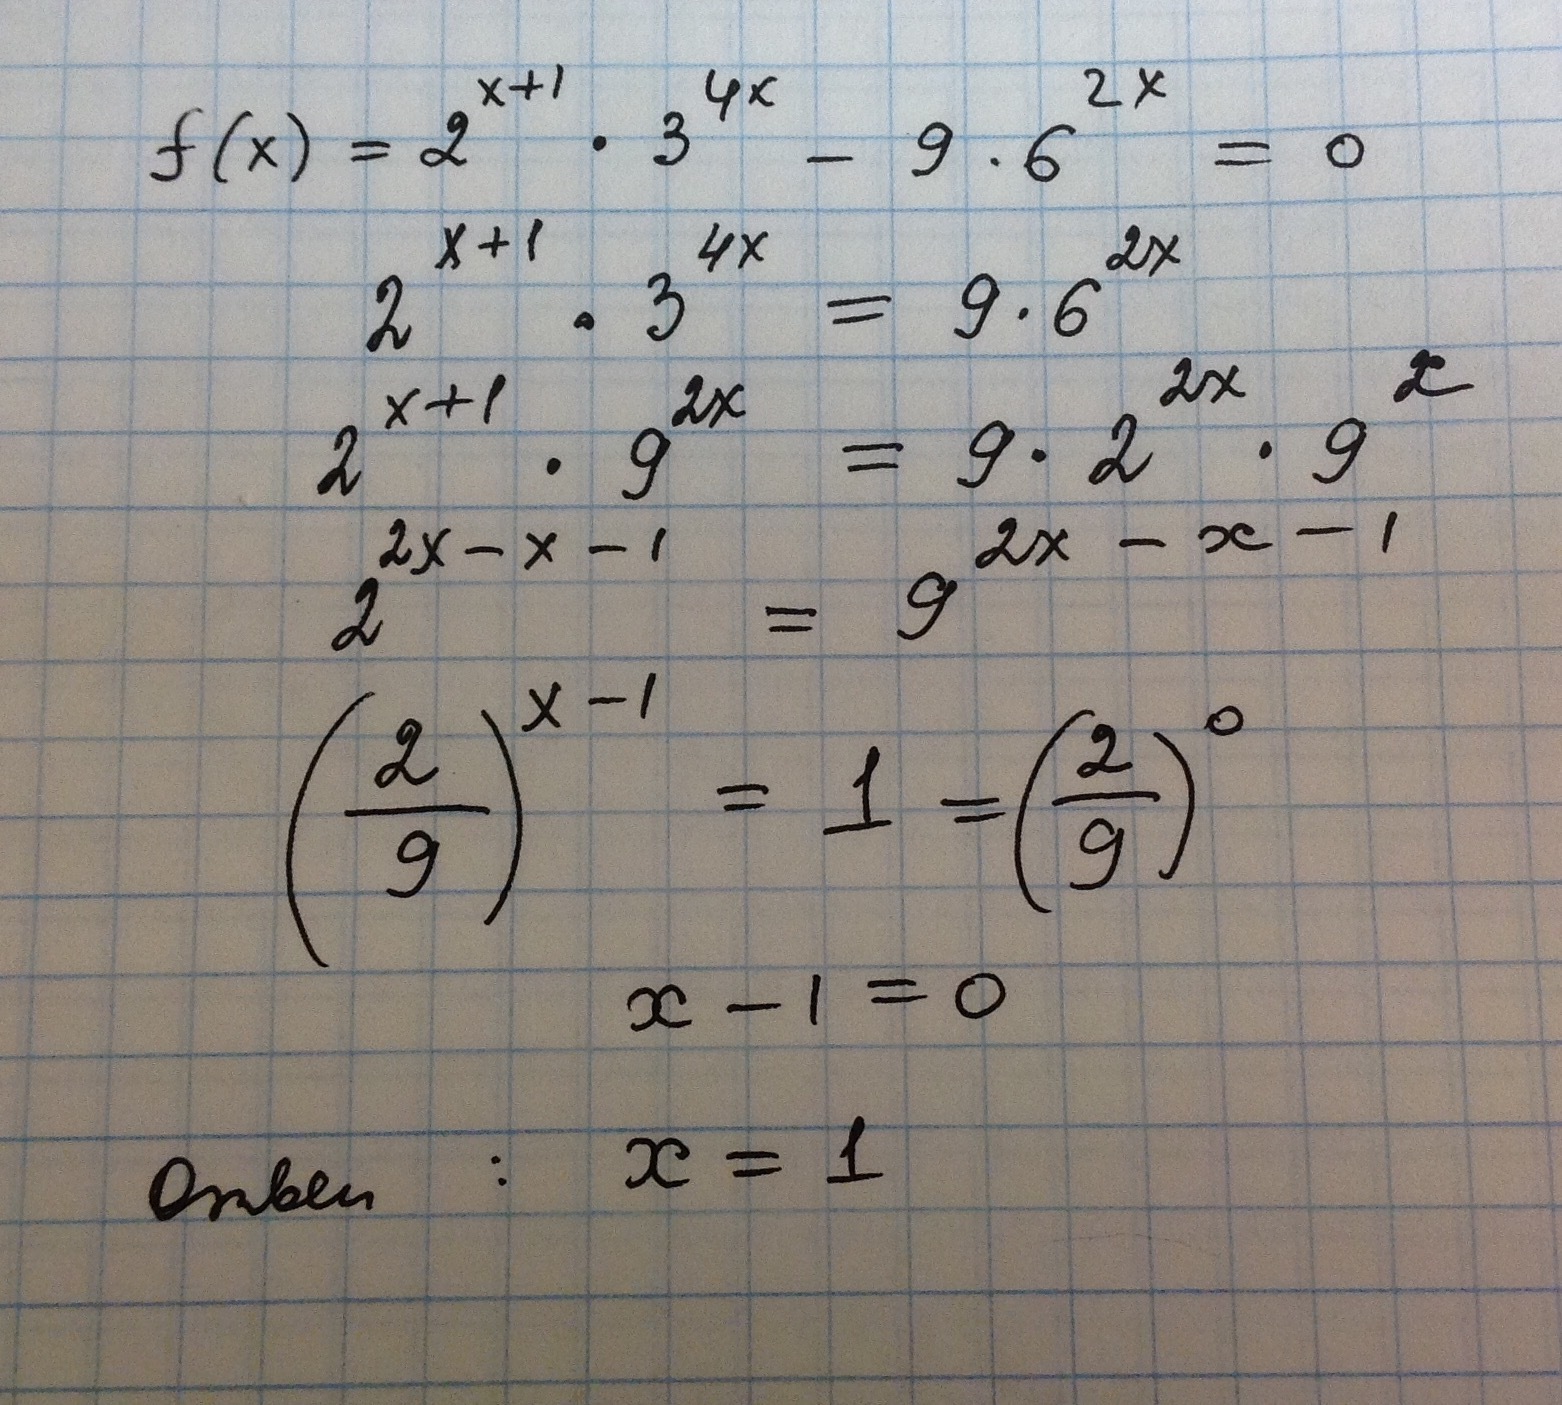 f(x) = 2^{x+1} · 3^{4x} − 9 · 6^{2x} = 0
2^{x+1} · 3^{4x} = 9 · 6^{2x}
2^{x+1} · 9^{2x} = 9 · 2^{2x} · 9^{x}
2^{2x−x−1} = 9^{2x−x−1}
(2/9)^{x−1} = 1 = (2/9)^{0}
x − 1 = 0
Ответ : x = 1